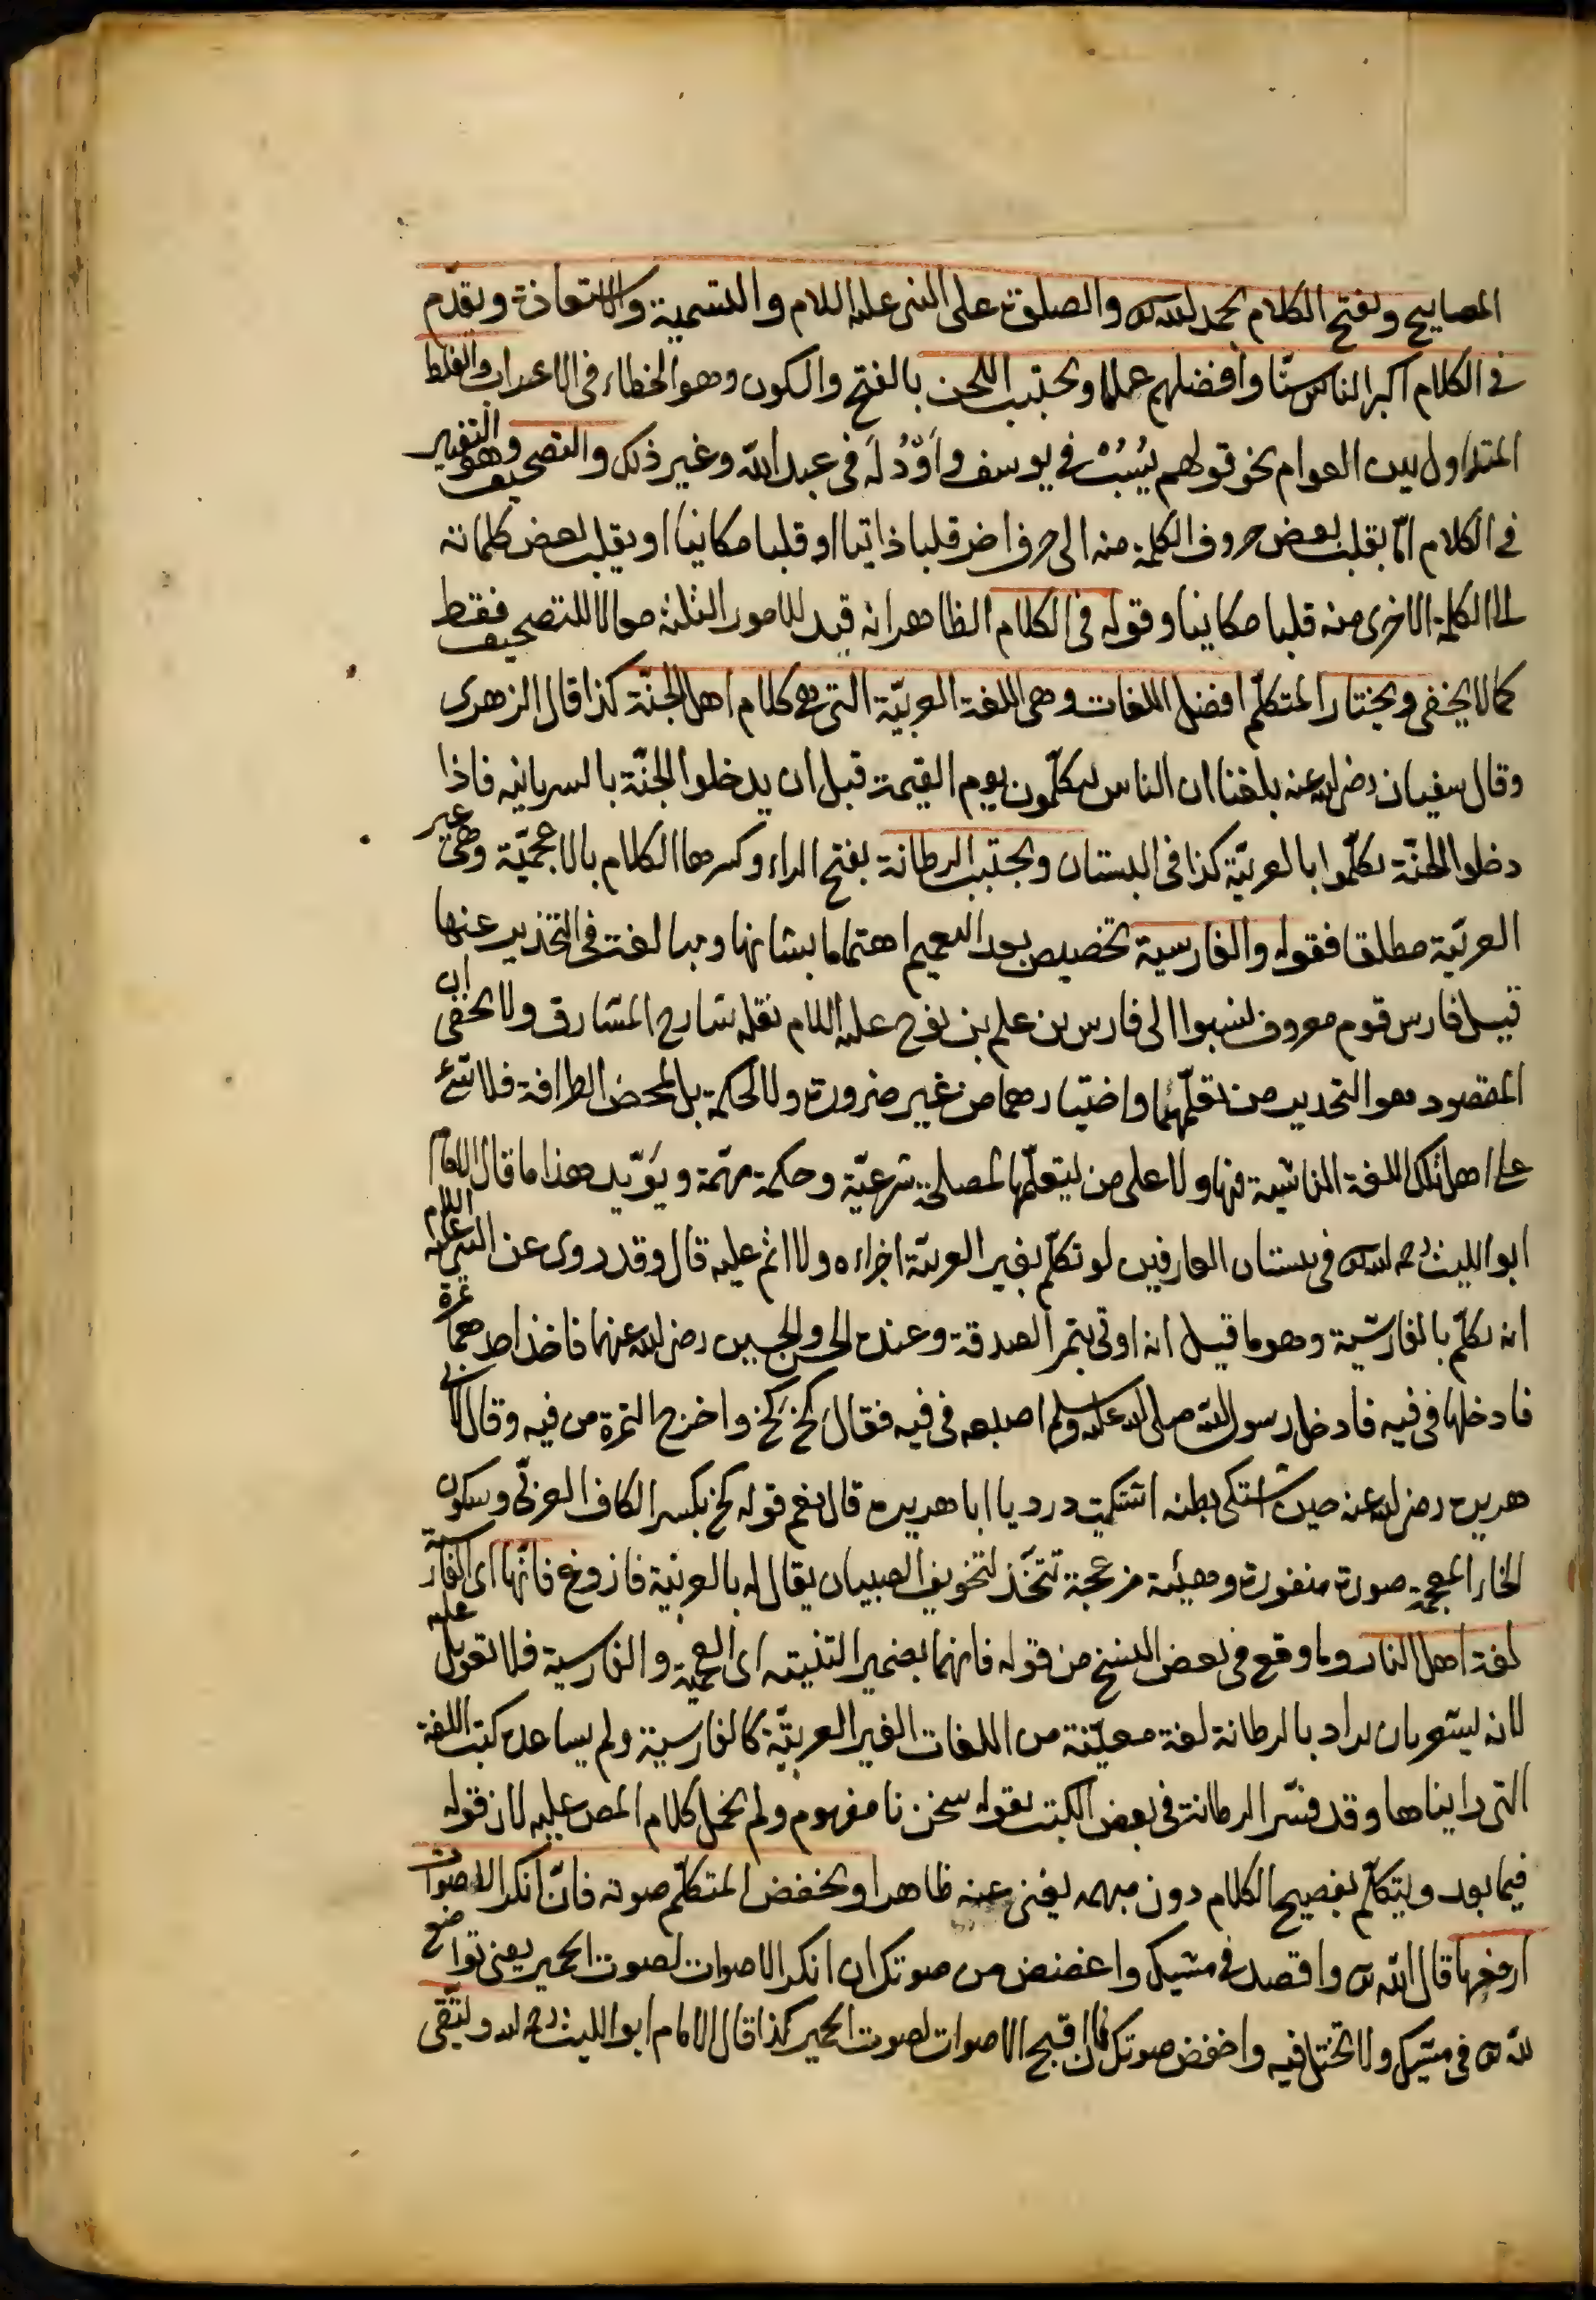 المصابيح ويفتح الكلام بحمد الله تعالى والصلوة على النبى عليه السلام والتسمية والاستعاذة ويقدّم
فى الكلام اكبر الناس سنّا وافضلهم عملا ويجتنب اللحن بالفتح والسكون وهو الخطاء فى الاعراب والغلط
المتداول بين العوام نحو قولهم يُسُبْ فى يوسف واَوْدُلَه فى عبد الله وغير ذلك والتصحيف وهو التغيير
فى الكلام امّا بقلب بعض حروف الكلمة منه الى حرف اخر قلبا ذاتيا او قلبا مكانيا او بقلب بعض كلماته
الى الكلمة الاخرى منه قلبا مكانيا وقوله فى الكلام الظاهر انه قيد للامور الثلثة معا لا للتصحيف فقط
كما لا يخفى ويختار المتكلّم افضل اللغات وهى اللغة العربيّة التى هى كلام اهل الجنّة كذا قال الزهرى
وقال سفيان رضى الله عنه بلغنا ان الناس يتكلّمون يوم القيمة قبل ان يدخلوا الجنّة بالسريانيه فاذا
دخلوا الجنّة تكلّموا بالعربيّة كذا فى البستان ويجتنب الرطانة بفتح الراء وكسرها الكلام بالاعجميّة وهى غير
العربيّة مطلقا فقوله والفارسية تخصيص بعد التعميم اهتماما بشانها ومبالغة فى التحذير عنها
قيل فارس قوم معروف نسبوا الى فارس بن علم بن نوح عليه السلام نقله شارح المشارق ولا يخفى ان
المقصود هو التحذير من تعلّمهما واختيارهما من غير ضرورة ولا لحكمة بل لمحض الظرافة فلا شئ
على اهل تلك اللغة الناشية فيها ولا على من يتعلّمها لمصلحة شرعيّة وحكمة مهمّة ويؤيّد هذا ما قال الامام
ابو الليث رحمه الله تعالى فى بستان العارفين لو تكلّم بغير العربيّة اجزاءه ولا اثم عليه قال وقد روى عن النبى عليه السلام
انه تكلّم بالفارسيّة وهو ما قيل انه اوتى بتمر الصدقة وعنده الحسن والحسين رضى الله عنهما فاخذ احدهما تمرة
فادخلها فى فيه فادخل رسول الله صلى الله عليه وسلم اصبعه فى فيه فقال كَخْ كَخْ واخرج التمرة من فيه وقال لابى
هريره رضى الله عنه حين اشتكى بطنه اشتكيت درد يا ابا هريره قال نعم قوله كخ بكسر الكاف العربىّ وسكون
الخاء المعجمة صورة منفورة وهيئة مزعجة تتخّذ لتخويف الصبيان يقال له بالعربيّة فازوغ فانّها اى الفارسيّة
لغة اهل النار وما وقع فى بعض النسخ من قوله فانهما بضمير التثنيته اى العجميّة والفارسية فلا تعويل عليه
لانه يشعر بان يراد بالرطانة لغة معيّنة من اللغات الغير العربيّة كالفارسية ولم يساعده كتب اللغة
التى رايناها وقد فسّر الرطانة فى بعض الكتب بقوله سخن نا مفهوم ولم يحمل كلام المص عليه لان قوله
فيما بعد ويتكلّم بفصيح الكلام دون مبهمه يغنى عنه ظاهرا ويخفض المتكلّم صوته فانّ انكر الاصوات
ارفعها قال الله تعالى واقصد فى مشيك واغضض من صوتك ان انكر الاصوات لصوت الحمير يعنى تواضع
لله تعالى فى مشيك ولا تختل فيه واخفض صوتك فان اقبح الاصوات لصوت الحمير كذا قال الامام ابو الليث رحمه الله وليتّقى